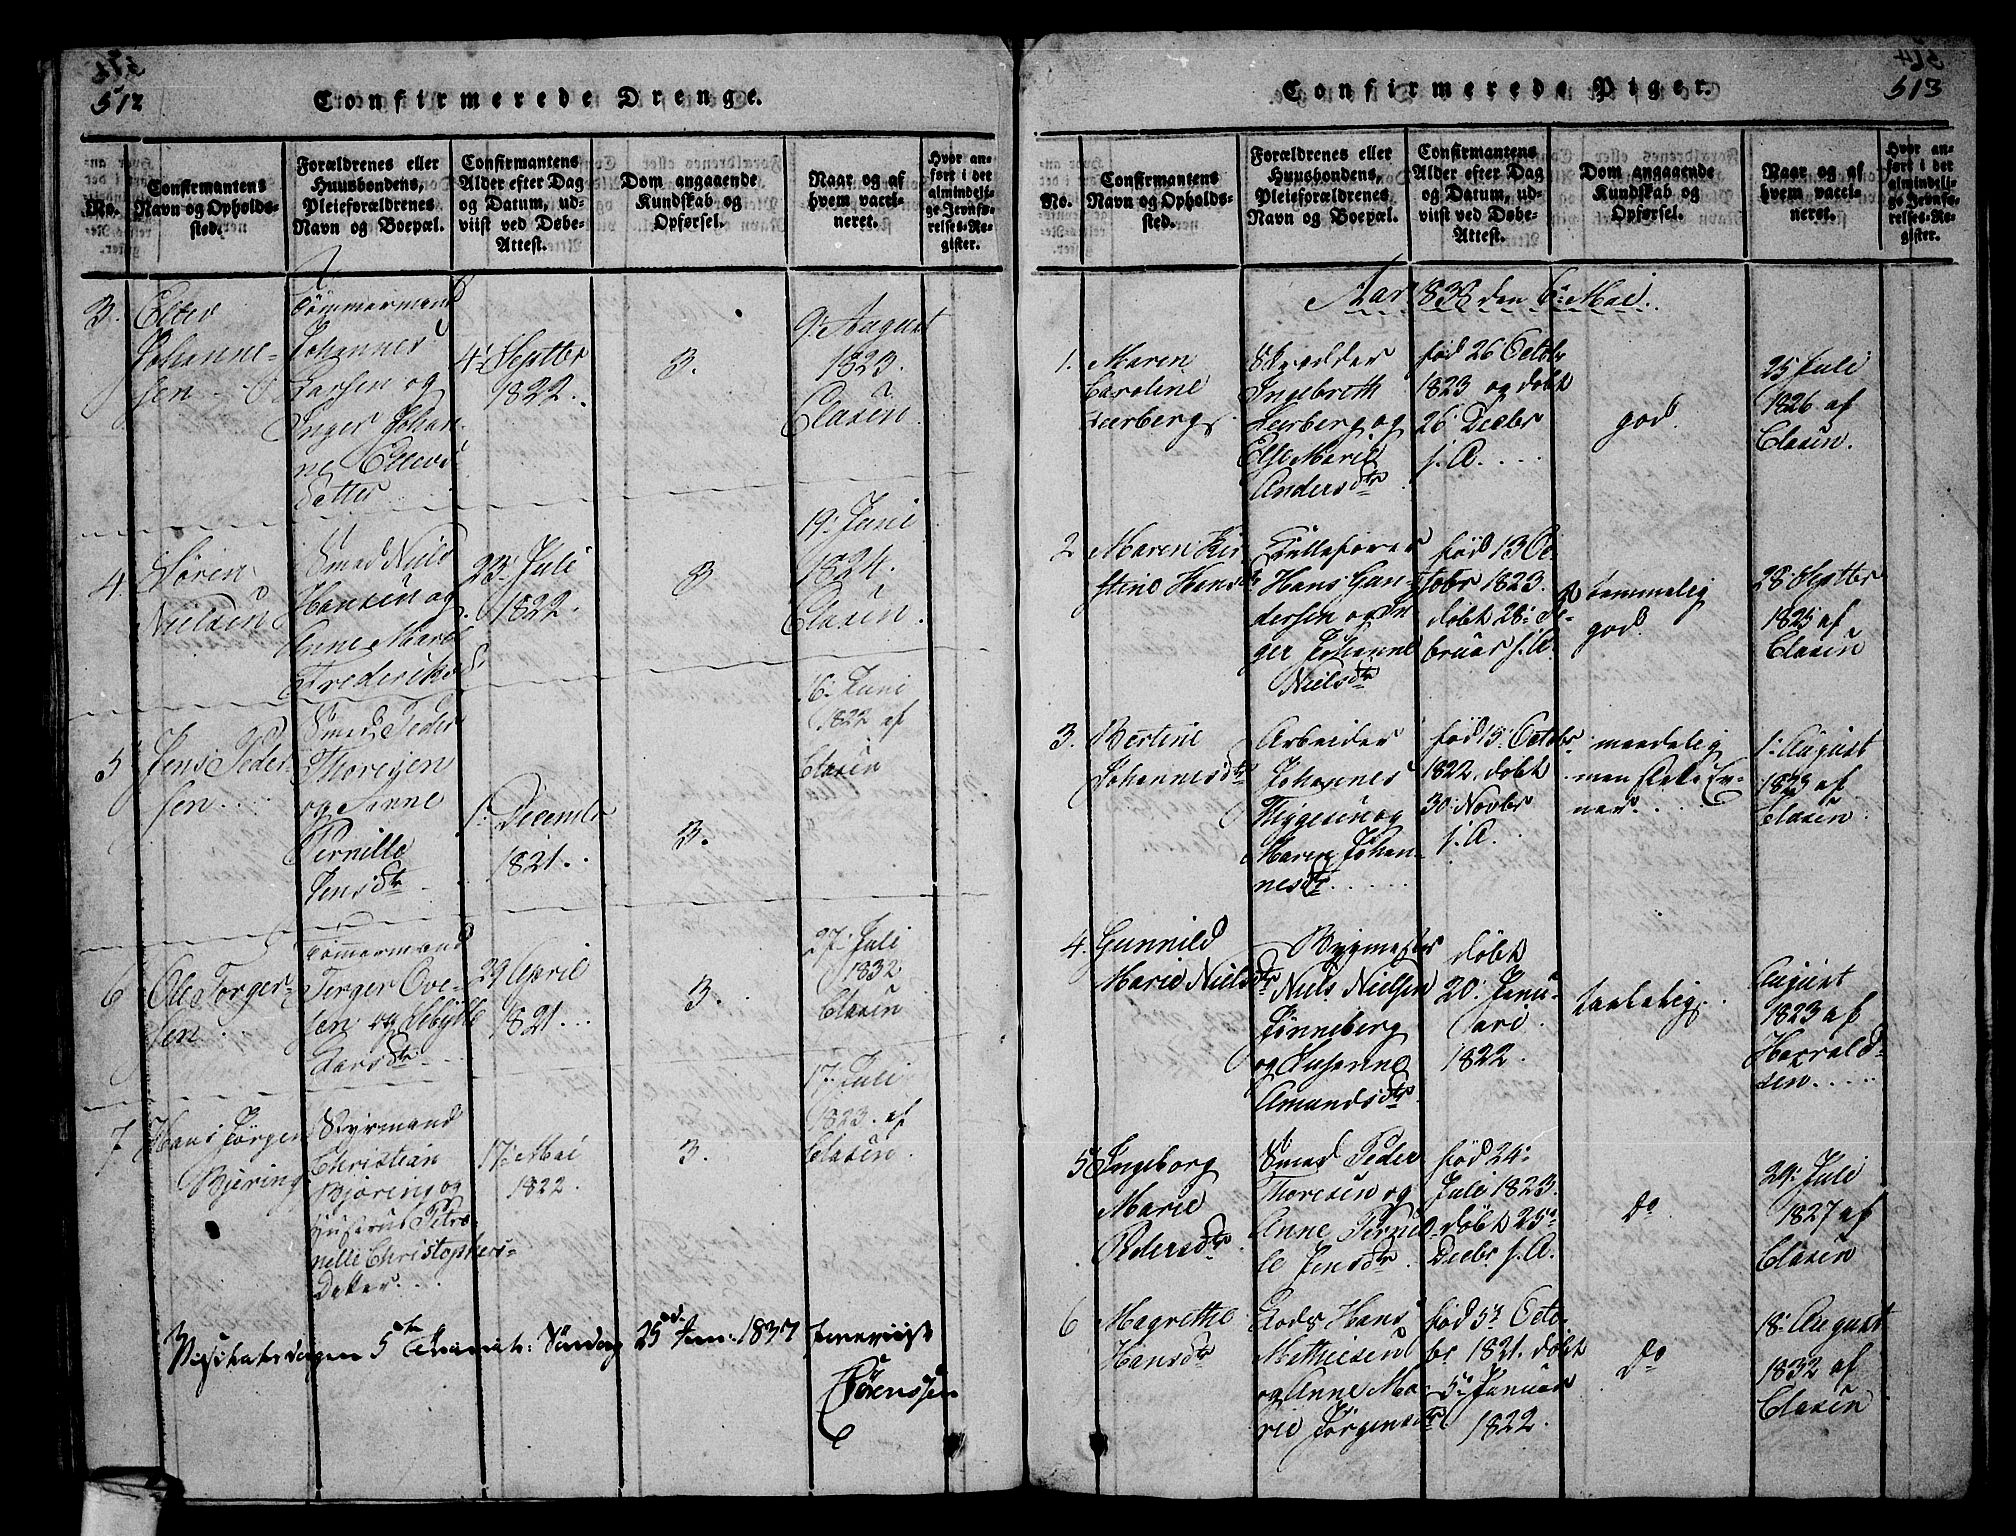 512
Confirmerede Drenge.
No.
Confirmantens
Navn og Opholds-
sted.
Forældrenes eller
Huusbondens,
Pleieforældrenes
Navn og Boepæl.
Confirmantens
Alder efter Dag
og Datum, ud-
viist ved Døbe-
Attest.
Dom angaaende
Kundskab og
Opførsel.
Naar og af
hvem vacci-
neret.
Hvor an-
ført i det
almindeli-
ge Jevnfø-
relses-Re-
gister.
3.
Johanne-
sen
Tømmermand
Johannes
Larsen og
Inger Johan-
ne Ellevs
Datter
4. Septbr
1822.
3.
9. August
1823.
Clasen
4
Søren
Nielsen
Smed Niels
Hansen og
Anne Marie
Frederiksd
23. Juli
1822.
3
19. Juni
1824.
Clasen.
5
Jens Peder-
sen
Smed Peder
Thoresen
og Anne
Pernille
Jensdtr
1. December
1821.
3.
6. Juni
1822 af
Clasen
6
Ole Torger-
sen
Tømmermand
Torger Ove-
sen og Sibylle
Larsdtr
29 April
1821
3.
27. Juli
1832
Clasen
7
Hans Jørgen
Bjering
Styrmand
Christian
Bjøring og
Hustrue Petro-
nelle Christophers-
Datter
17. Mai
1822.
3.
17. Juli
1823. af
Clasen.
Visitatsdagen 5te Trinit: Søndag 25d Jun: 1837 foreviist
Sørenssen
513
Confirmerede Piger.
No.
Confirmantens
Navn og Opholds-
sted.
Forældrenes eller
Huusbondens,
Pleieforældrenes
Navn og Boepæl.
Confirmantens
Alder efter Dag
og Datum, ud-
viist ved Døbe-
Attest.
Dom angaaende
Kundskab og
Opførsel.
Naar og af
hvem vacci-
neret.
Hvor an-
ført i det
almindeli-
ge Jevnfø-
relses-Re-
gister.
Aar 1838 den 6. Mai.
1.
Maren
Caroline
Leerberg
Skrædder
Ingebreth
Leerberg og
Else Marie
Andersdtr
fød 26 Octobr
1823 og døbt
26 Decbr
s. A.
god.
25 Juli
1826 af
Clasen.
2
Maren Kir-
stine Hansdtr
Hans Gun-
dersen og In-
ger Johanne
Nielsdtr
fød 13 Oc-
tobr 1823.
døbt 28. Fe-
bruar s. A.
temmelig
god.
28. Septbr
1825 af
Clasen
3.
Bertine
Johannesdtr
Arbeider
Johannes
Tiggesen og
Maren Johan-
nesdtr
fød 13. Octobr
1822. døbt
30. Novbr
s. A.
maadelig
men
1. August
1823 af
Clasen.
4.
Gunnild
Marie Nielsdtr
Bygmester
Niels Nielsen
Tønneberg
og
Amundsdtr
døbt
20. Janu-
ari.
1822.
taalelig
August
1823 af
Harald-
sen
5
Ingeborg
Marie
Pedersdtr
Smed Peder
Thoresen og
Anne Pernil-
le Jensdtr
fød 24.
Juli 1823.
døbt 25.
Decbr s. A.
Do
24. Juli
1827 af
Clasen
6
Magrethe
Hansdtr
Lods Hans
Mathiesen
og Anne Ma-
rie Jørgensdtr
fød 5. Octo-
br 1821. døbt
5. Januar
1822.
Do
18. August
1832 af
Clasen